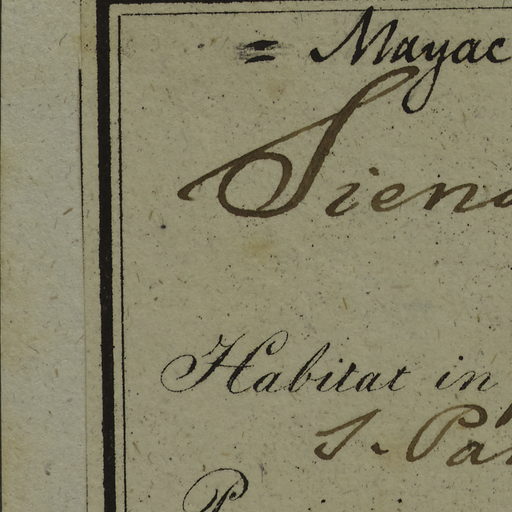 = Mayac
Siena
Habitat in
S. Pa